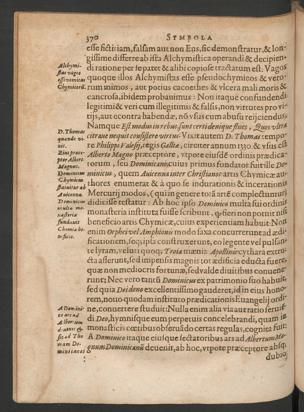 370 SYMBOLA
esse fictitiam, falsam aut non Ens, sic demonstratur, & lon-
gissimè differre ab ista Alchymistica operandi & decipien-
di ratione per se patet & alibi copiosè tractatum est: Vagos
quoque illos Alchymistas esse pseudochymicos & vero-
rum mimos, aut potius cacoethes & vlcera mali moris &
cancrosa, ibidem probauimus: Non itaque confundendi
legitimi & veri cum illegitimis & falsis, non virtutes pro vi-
tijs, aut econtra habendæ, nō vsus cum abusu reijciendus.
Namque Est modus in rebus, sunt certi denique fines, Quos vltra
citraque nequit consistere verum: Vixit autem D. Thomas tempo-
re Philippi Valesij, regis Galliæ, circiter annum 1330 & vsus est
Alberto Magno præceptore, vtpote eiusdē ordinis prædica-
torum, seu Dominicano: cuius primus fundator fuit ille Do-
minicus, quem Auicenna inter Christianos artis Chymicæ au-
thores enumerat & à quo se in durationis & incerationis
Mercurij modos, (quin integræ toti arti complectuntur)
didicisse testatur: Ab hoc ipso Dominico multa sui ordinis
monasteria instituta fuisse scribunt, queri non ponit nisi
beneficio artis Chymicæ, cuius experientiam habuit: Non
enim Orphei vel Amphionis modo saxa concurrerunt ad ædi-
ficationem, seq; ipsa construxerunt, eo legente vel pulsan-
te lyram, veluti quoq; Troia mœnia Apollinis cythara extru-
cta asserunt, sed impensis magnis tot ædificia educta fuere,
quæ non mediocris fortunæ, sed valde diuitibus conuene-
runt: Nec vero tantis Dominicus ex patrimonio suo habuit,
sed quia Dei dono excellentissimo gauderet, id in eius hono-
rem, nouo quodam instituto prædicationis Euangelij ordi-
ne, conuertere studuit: Nulla enim alia via aut ratio serui-
di Deo, hymnisque eum perpetuis concelebrandi, quam in
monasticis cœtibus obseruādo certas regulas, cognita fuit:
A Dominico itaque eiusque sectatoribus ars ad Albertum Ma-
gnum Dominicanū deuenit, ab hoc, vtpote præceptore absq;
dubio,
Alchymi-
stas vagos
esse mimicos
Chymicorū.
D. Thomas
quando vi-
xit.
Eius præce-
ptor Albert.
Magnus.
Dominicum
Chymicum
statuitur ab
Auicenna.
Dominicus
multa mo-
nasteria
fundauit
Chemiæ be-
neficio.
A Domi-
nico ars ad
Albertum
& ab eo
ad Tho-
mam Do-
minicanos